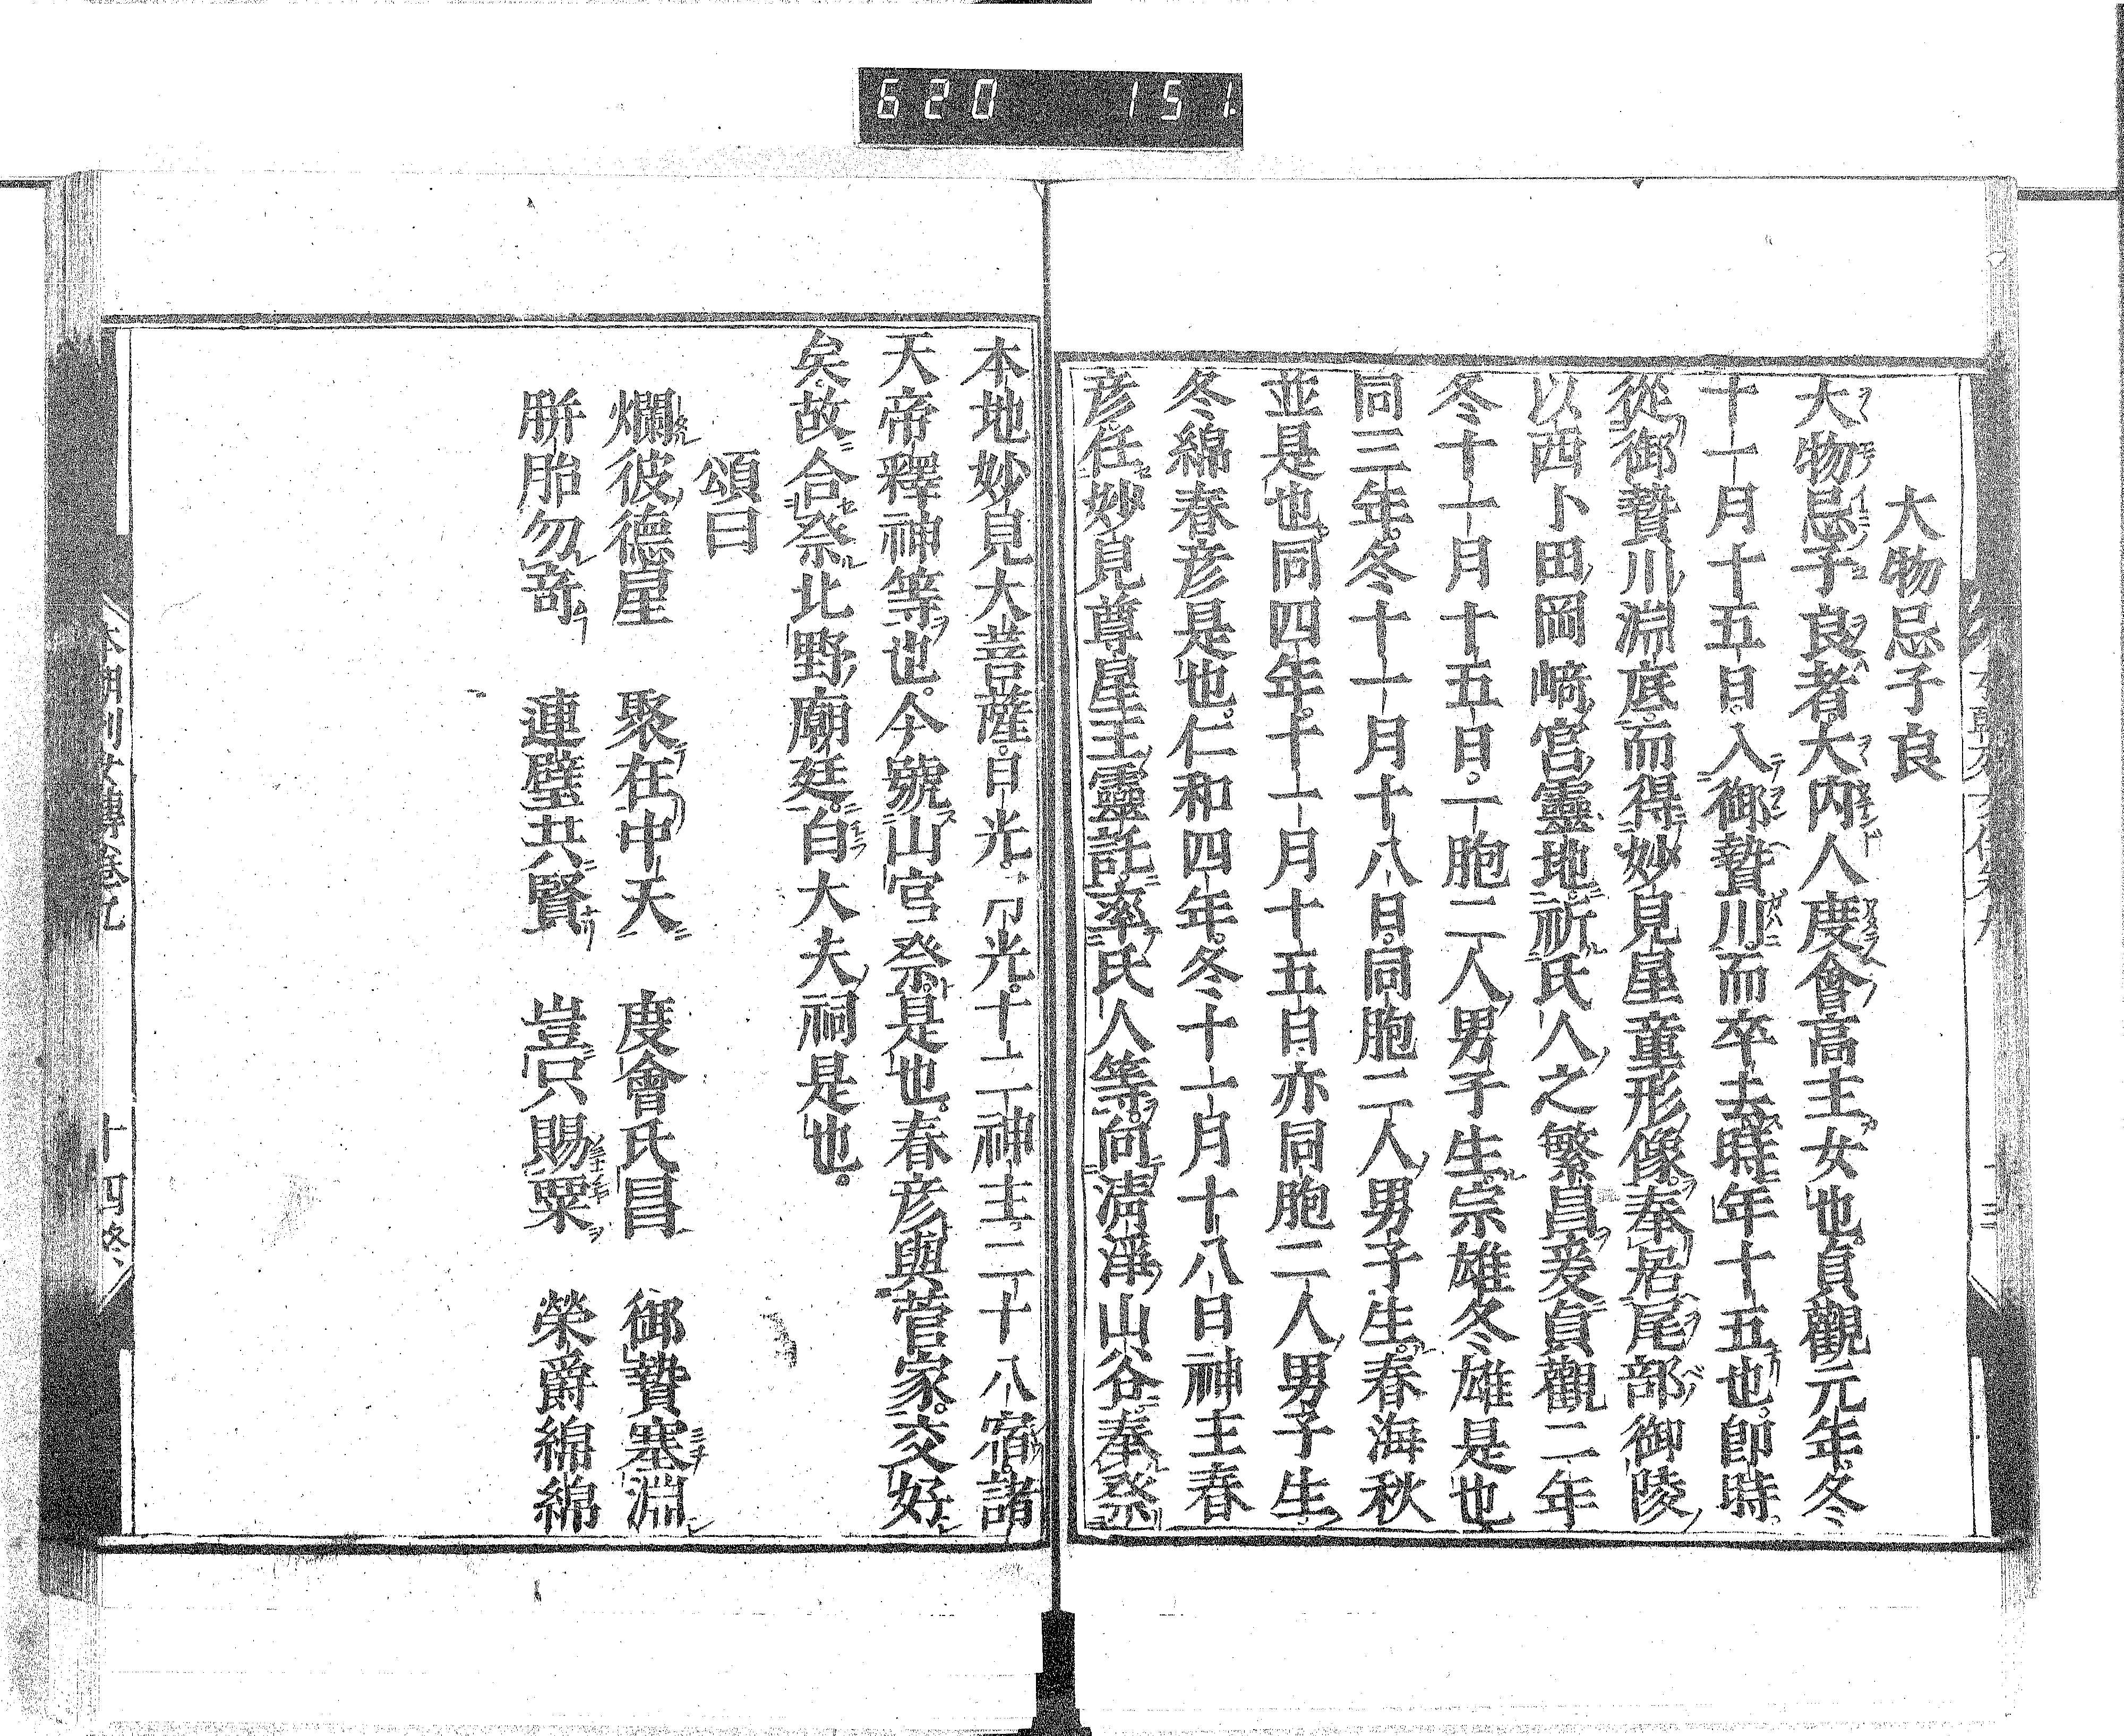 620 151
大物忌子良
大物忌子良者。大内人度會高主女也。貞觀元年。冬
十一月十五日。入御贄川。而卒去。時年十五也。卽時
從御贄川淵底。而得妙見星童形像。奉居尾部御陵
以西卜田岡﨑宮靈地。祈氏人之繁昌。爰貞觀二年
冬十一月十五日。一胞二人男子生。宗雄冬雄是也
同三年。冬十一月十八日。同胞二人男子生。春海秋
並是也。同四年。十一月十五日亦同胞二人男子生
冬綿春彦是也。仁和四年。冬十一月十八日神主春
彦任妙見尊星王靈託。率氏人等。向淸淨山谷奉祭
本地妙見大菩薩。日光。月光。十二神主。二十八宿。諸
天帝釋神等也。今號山宮祭。是也。春彦與菅家。交好
矣。故合祭北野廟廷。白大夫祠是也。
頌曰
爛彼德星 聚在中天 度會氏昌 御贄塞淵
駢胎勿奇 連璧共賢 豈只賜粟 榮爵綿綿
本朝列女傳卷九 十四終